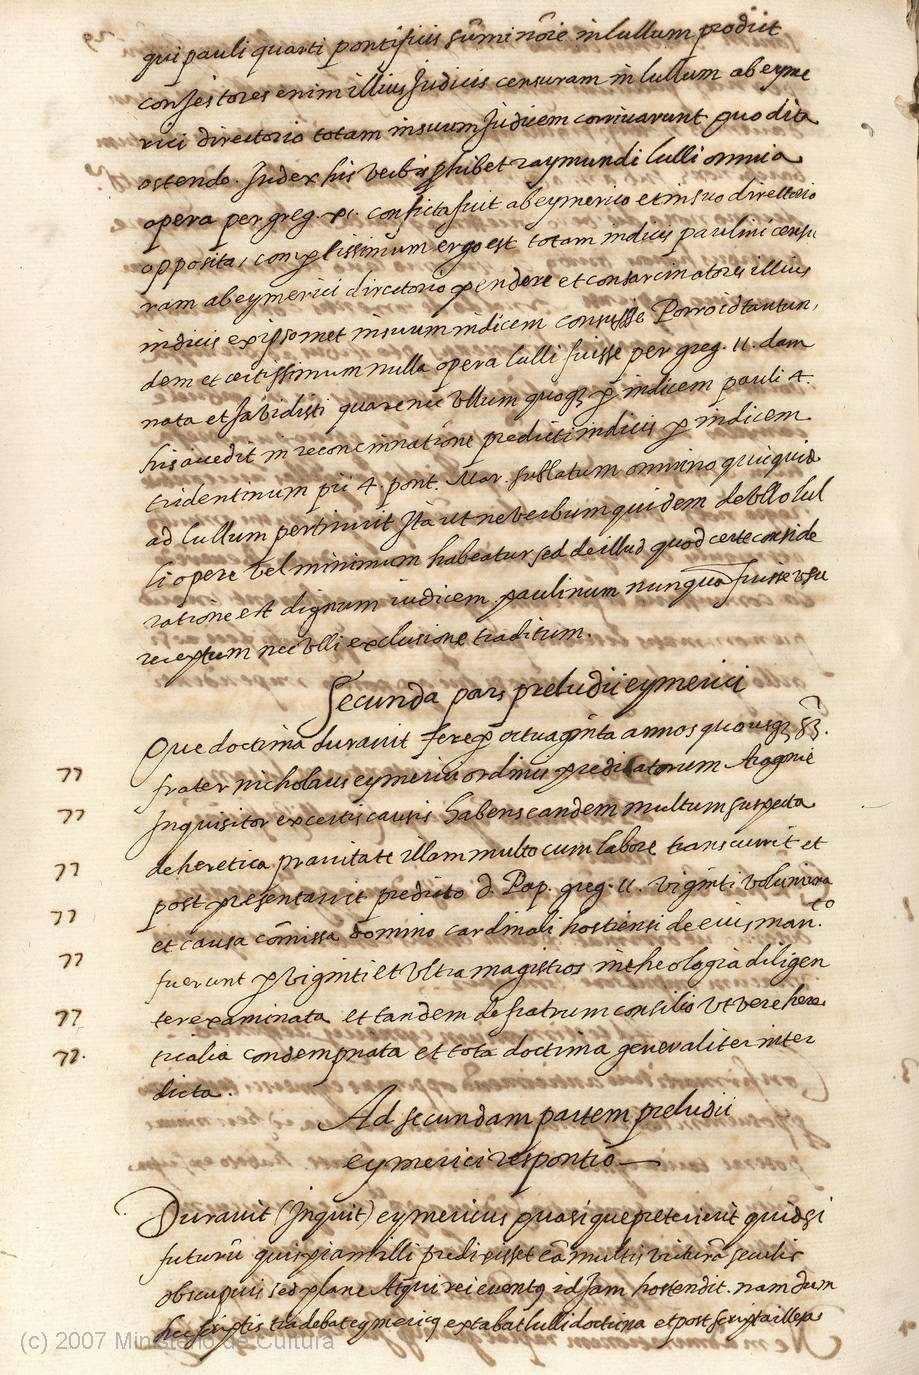 qui pauli quarti pontificis sūmi nōie in lullum prodiit
confestores enim illius Judicis censuram in lullum ab eyme
rici directorio totam in suum Judicem corrivarunt quod ita
ostendo. Judex his verbis ꝓhibet raymundi lulli omnia
opera per greg. xi. conficta fuit ab eymerico et in suo directorio
opposita, complissimum ergo est totam indicis paulini censu
ram ab eymerici directorio pendere et consarcinatores illius
indicis ex ipsomet in suum indicem Porro id tantun,
dem et certissimum nulla opera lulli fuisse per greg. 11. dam
nata et sa vidisti quare nec vllum quoqꝫ ꝑ indicem pauli 4.
his accedit in reconcinnatione predicti indicis ꝑ indicem
tridentinum pii 4. pont. Max. sublatum omnino quicquid
ad lullum pertinuit Ita ut ne verbum quidem de vllo lul
li opere vel minimum habeatur sed de illud quod certe conside
ratione est dignum iudicem paulinum nunquā fuisse vsu
receptum nec vlli exclusione traditum.
Secunda pars preludii eymerici
Que doctrina duravit fere ꝑ octuaginta annos quousqꝫ
frater nicholaus eymericus ordinis predicatorum Aragonie
Inquisitor ex certis causis habens eandem multum suspecta
de heretica pravitate illam multo cum labore transcurrit et
post presentavit predicto d. Pap. greg. 11. viginti volumina
et causa cōmissa domino cardinali hostiensi de eius man.to
fuerunt ꝑ viginti et vltra magistros in theologia diligen
ter examinata et tandem de fratrum consilio vt vere here
ticalia condempnata et tota doctrina generaliter inter
dicta.
Ad secundam partem preludii
eymerici responsio
Duravit (Inquit) eymericus quasi que preterierit quid si
futurū quispiam illi predixisset eā multis victurā seculis
obscuquis sed plane Atqui rei eventqꝫ id Jam hostendit. nam dum
hec scriptis tradebat eymericꝫ extabat lulli doctrina et post scripta illeza
(c) 2007 Ministerio de Cultura